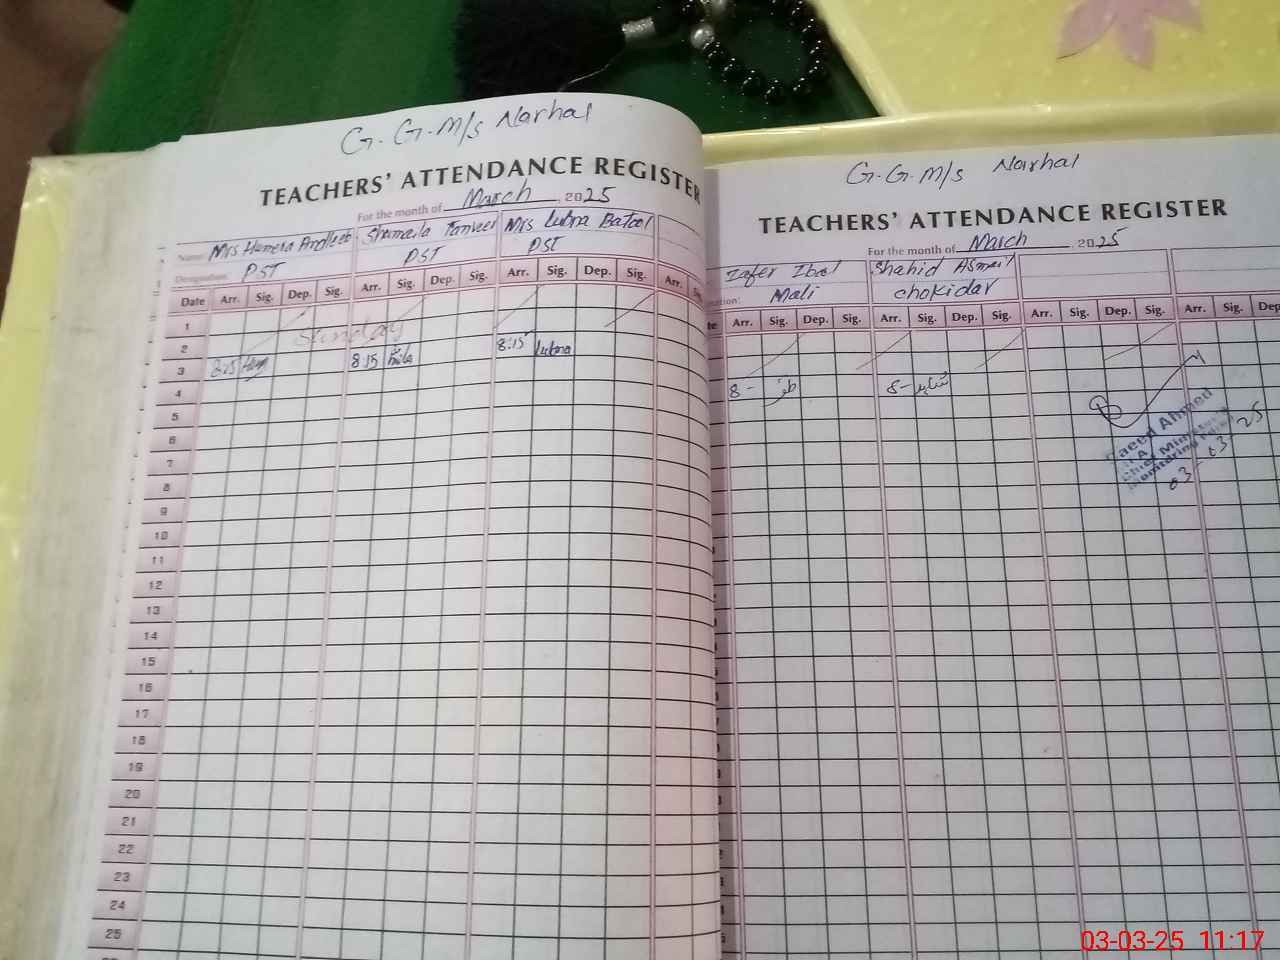 G.G.M/s Narhal
TEACHERS' ATTENDANCE REGISTER
For the month of March, 2025
Name: Mrs Humera Andleeb Shumaila Tanveer Mrs Lubna Batool
Designation: PST PST PST
Date Arr. Sig. Dep. Sig. Arr. Sig. Dep. Sig. Arr. Sig. Dep. Sig. Arr. Sig.
1
2 Sunday
3 8:15 8:15 8:15 Lubna
4
5
6
7
8
9
10
11
12
13
14
15
16
17
18
19
20
21
22
23
24
25
G.G.M/s Narhal
TEACHERS' ATTENDANCE REGISTER
For the month of March, 2025
Zafer Ibal Shahid
Mali Chokidar
Arr. Sig. Dep. Sig. Arr. Sig. Dep. Sig. Arr. Sig. Dep. Sig. Arr. Sig. Dep
8- 8-
Saeed Ahmed
Chief Minister's
Monitoring
03-03-25
03-03-25 11:17